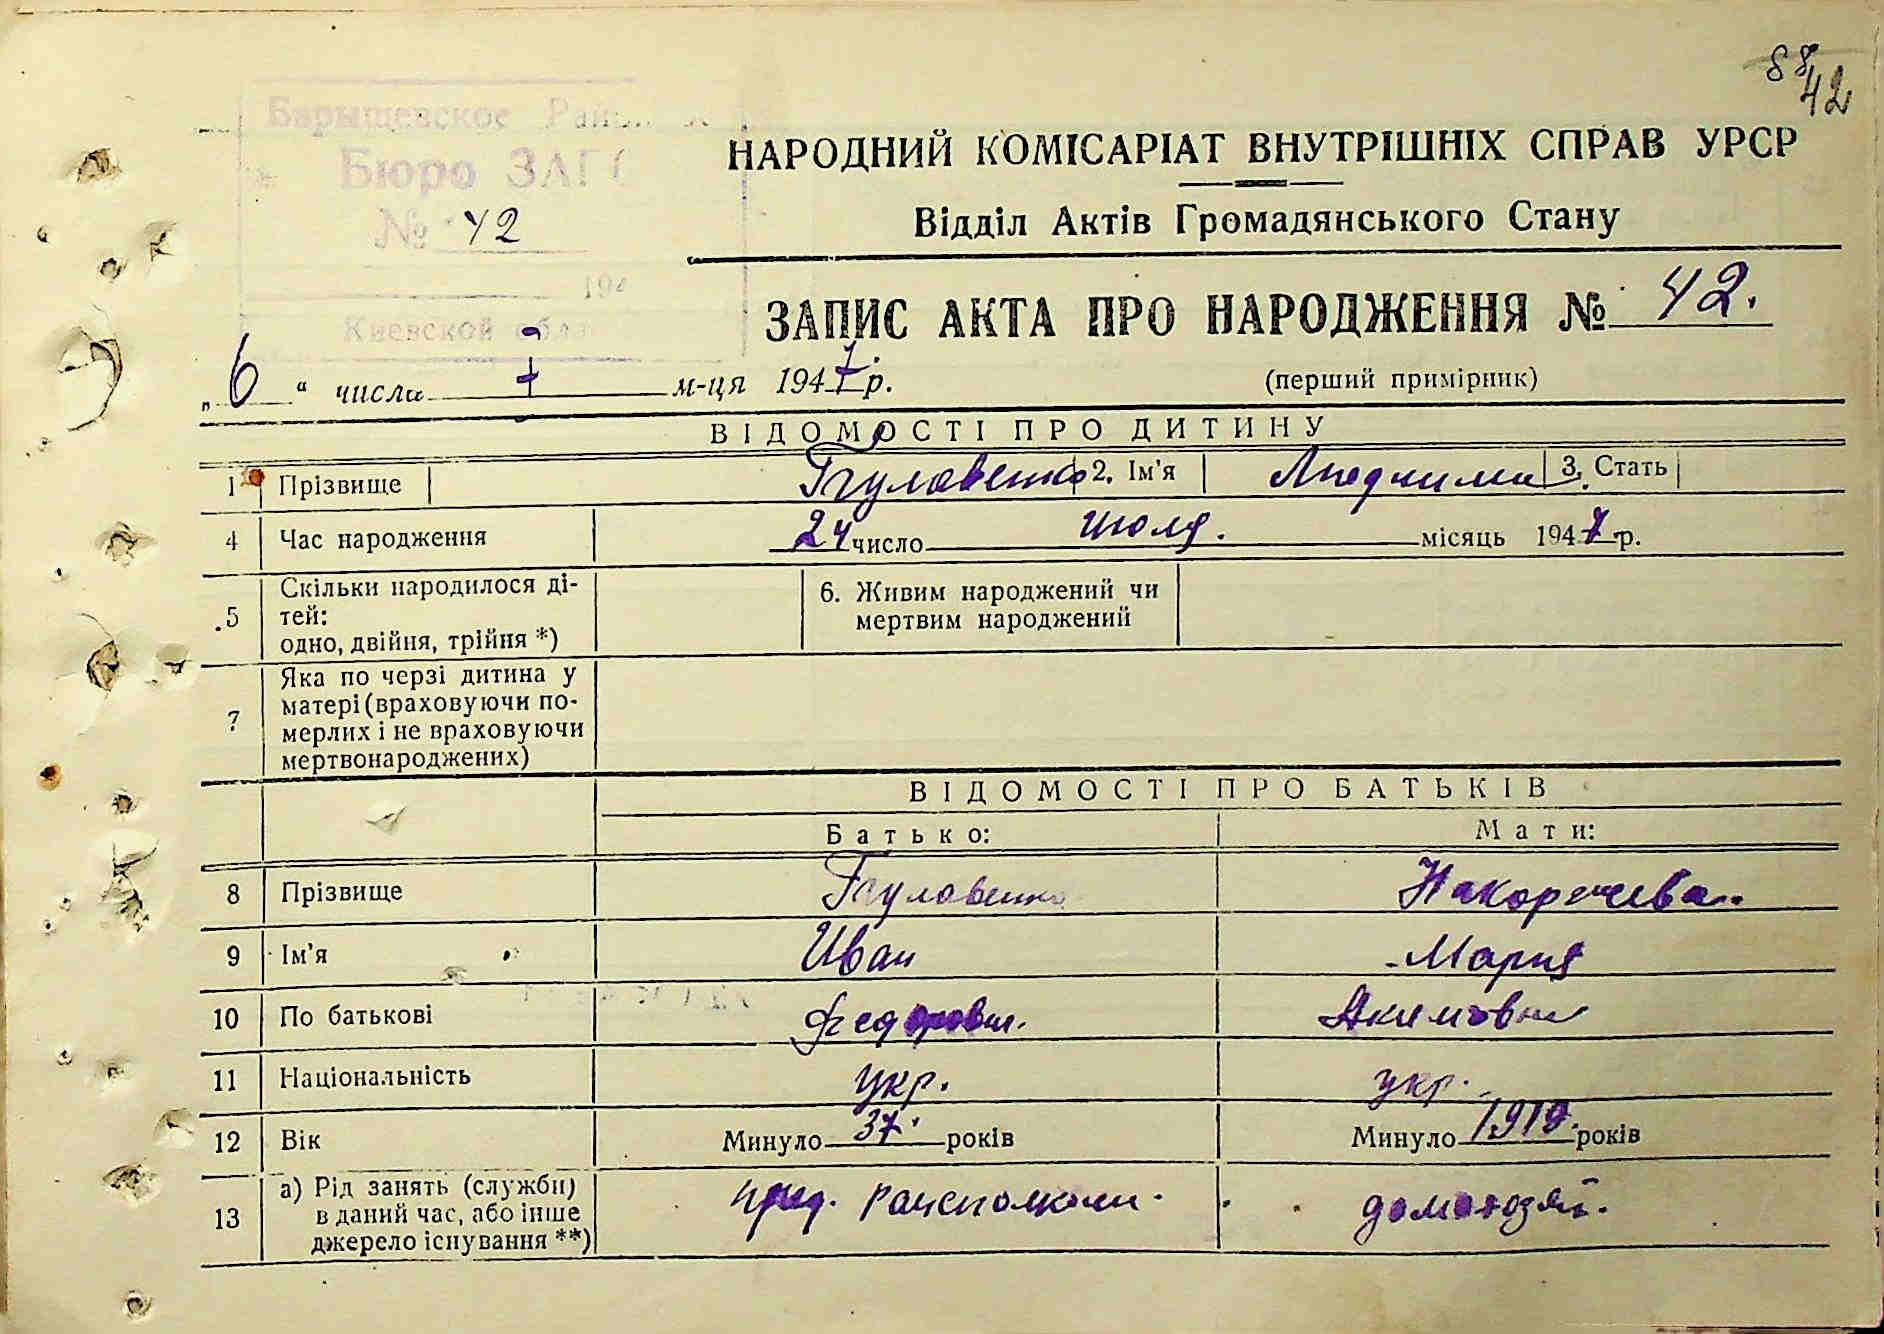 88
42
Барышевское Рай
Бюро ЗАГС
№ 42
194
Киевской обла
НАРОДНИЙ КОМІСАРІАТ ВНУТРІШНІХ СПРАВ УРСР
Відділ Актів Громадянського Стану
ЗАПИС АКТА ПРО НАРОДЖЕННЯ № 42.
„6“ числа 7 м-ця 1947 р. (перший примірник)
ВІДОМОСТІ ПРО ДИТИНУ
1 Прізвище 2. Ім'я Людмила 3. Стать
4 Час народження 24 число июля. місяць 1947 р.
5 Скільки народилося ді-
тей:
одно, двійня, трійня *)
6. Живим народжений чи
мертвим народжений
7 Яка по черзі дитина у
матері (враховуючи по-
мерлих і не враховуючи
мертвонароджених)
ВІДОМОСТІ ПРО БАТЬКІВ
Батько: Мати:
8 Прізвище
9 Ім'я Иван Мария
10 По батькові Федорович. Акимовна
11 Національність укр. укр.
12 Вік Минуло 37. років Минуло 1919. років
13 а) Рід занять (служби)
в даний час, або інше
джерело існування **)
пред. Райсполкома. домохозяй.